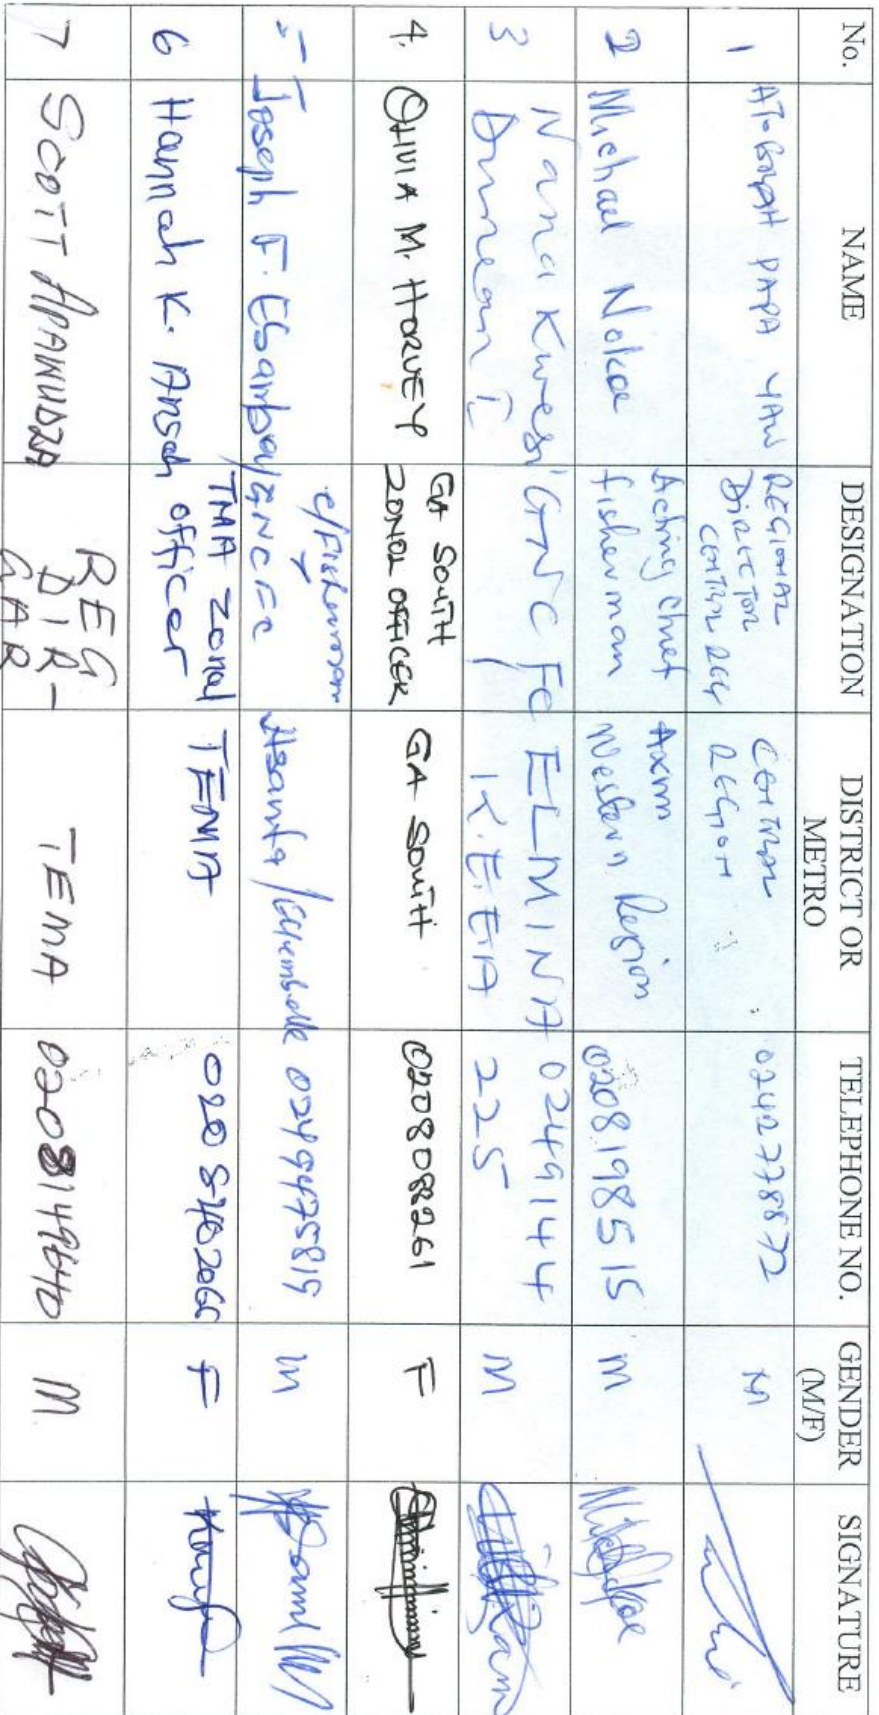 No. NAME DESIGNATION DISTRICT OR METRO TELEPHONE NO. GENDER (M/F) SIGNATURE
1 PAPA YAW REGIONAL DIRECTOR CENTRAL REGION 0242778872 M
2 Michael Nokoe Acting chief fisherman Axim Western Region 0208198515 m
3 Nana Kwesi Duncan I GNCFC ELMINA K.E.E.A 0249144225 M
4. OLIVIA M. HORVEY GA SOUTH ZONAL OFFICER GA SOUTH 0208088261 F
5 Joseph F. /GNCFC c/Fisherman 0249475819 m
6 Hannah K. Ansah TMA Zonal officer TEMA F
7 SCOTT APAWUDZA REG DIR- GAR TEMA M